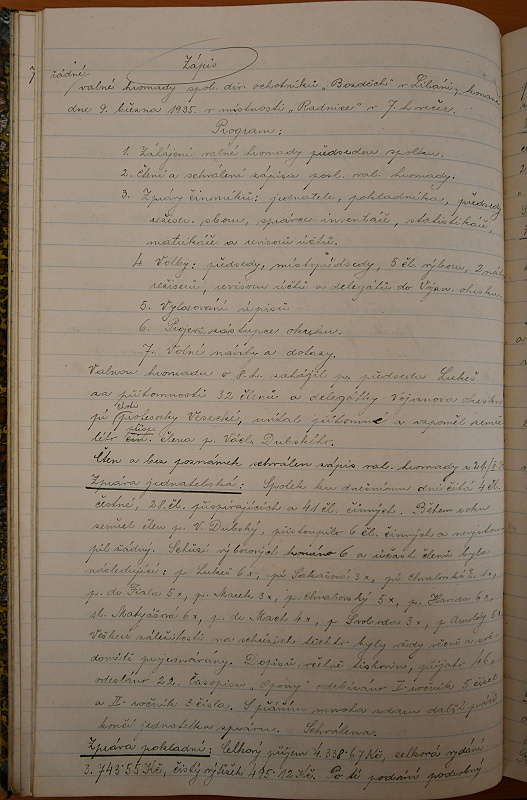 Zápis
řádné
valné hromady spol. div. ochotníků „Bozděch" v Libáni, konané
dne 9. března 1935 v místnosti „Radnice" v 7. h. večer.
Program:
1. Zahájení valné hromady předsedou spolku.
2. Čtení a schválení zápisu posl. val. hromady.
3. Zprávy činovníků: jednatele, pokladníka, předsedy
režisér. sboru, správce inventáře, statistikáře,
matrikáře a revisorů účtů.
4. Volby: předsedy, místopředsedy, 5 čl. výboru, 2 náhr.
režisérů, revisorů účtů a delegátů do Vojan. okrsku.
5. Vylosování úpisů
6. Projev zástupce okrsku.
7. Volné návrhy a dotazy.
Valnou hromadu o 8. h. zahájil p. předseda Lukeš
za přítomnosti 32 členů a delegátky Vojanova okrsku
pí profesorky Vesecké, uvítal přítomné a vzpoměl zemře
lého přísp. člena p. Václ. Dubského.
Čten a bez poznámek schválen zápis val. hromady z
Zpráva jednatelská: Spolek ku dnešnímu dni čítá 4 čl.
čestné, 28 čl. přispívajících a 41 čl. činných. Během roku
zemřel člen p. V. Dubský, přistoupilo 6 čl. činných a nevystou
pil žádný. Schůzí výborových konáno 6 a účast členů byla
následující: p. Lukeš 6 x, 3 x,
p. 5 x, p. Mach 3 x, p. Chvalovský 5 x, p. Handa 6 x,
sl. Matyášová 6 x, p. Mach 4 x, p. Svoboda 3 x, p. Arnoldy 5 x.
Veškeré záležitosti na schůzích těchto byly řádně a svě
domitě projednávány. Dopisů, včetně tiskovin, přijato 46,
odesláno 22. Časopisu „Opony" odebíráno I. ročník 5 čísel
a II. ročník 3 čísla. S přáním mnoha zdaru další práci
končí jednatelka zprávou. Schválena.
Zpráva pokladní: Celkový příjem 4.338·67 Kč, celková vydání
3.743·55 Kč, čistý výtěžek 495·12 Kč. Po té podán podrobný